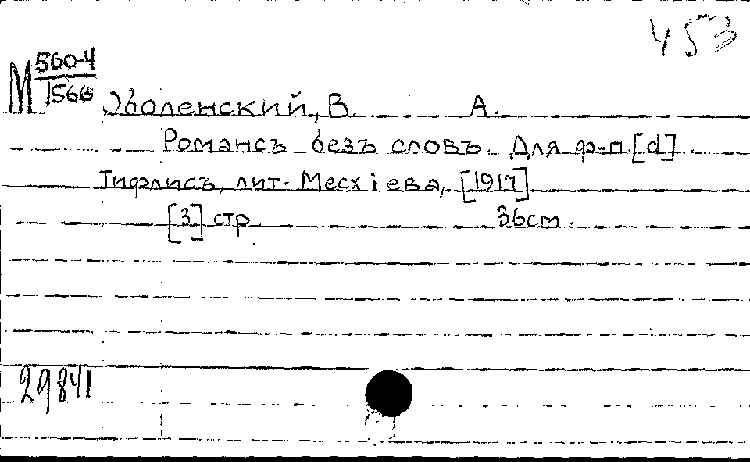 453
М 560-4
1566
Оболенский, В. А.
Романсъ безъ словъ. Для ф-п [d]
Тифлисъ, лит. Месхiева, [1917]
[3] стр. 36cm.
29841